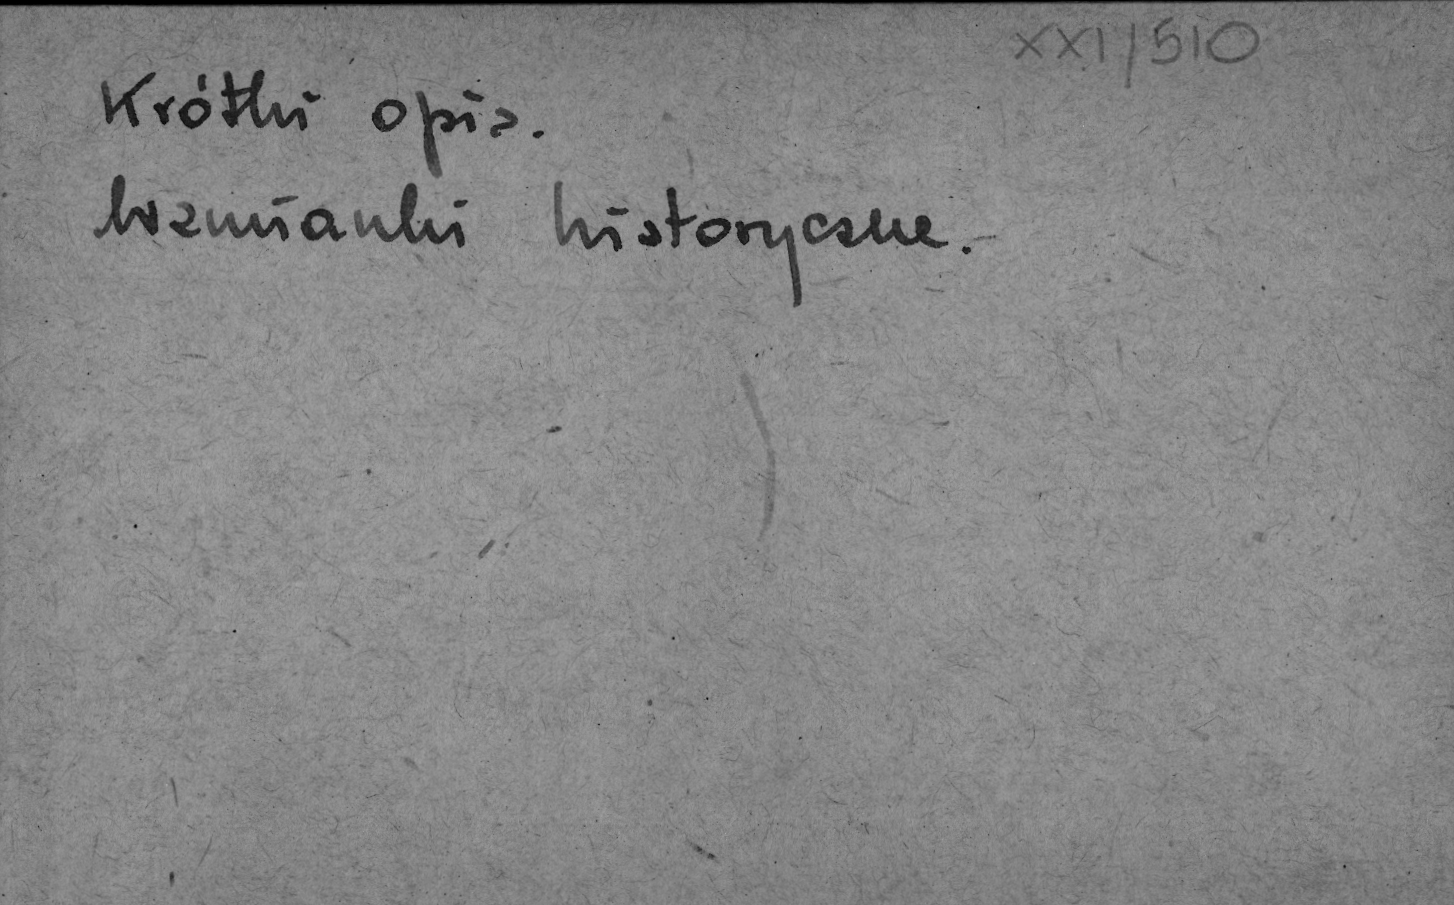 XXI/510
Krótki opis.
Wzmianki historyczne.